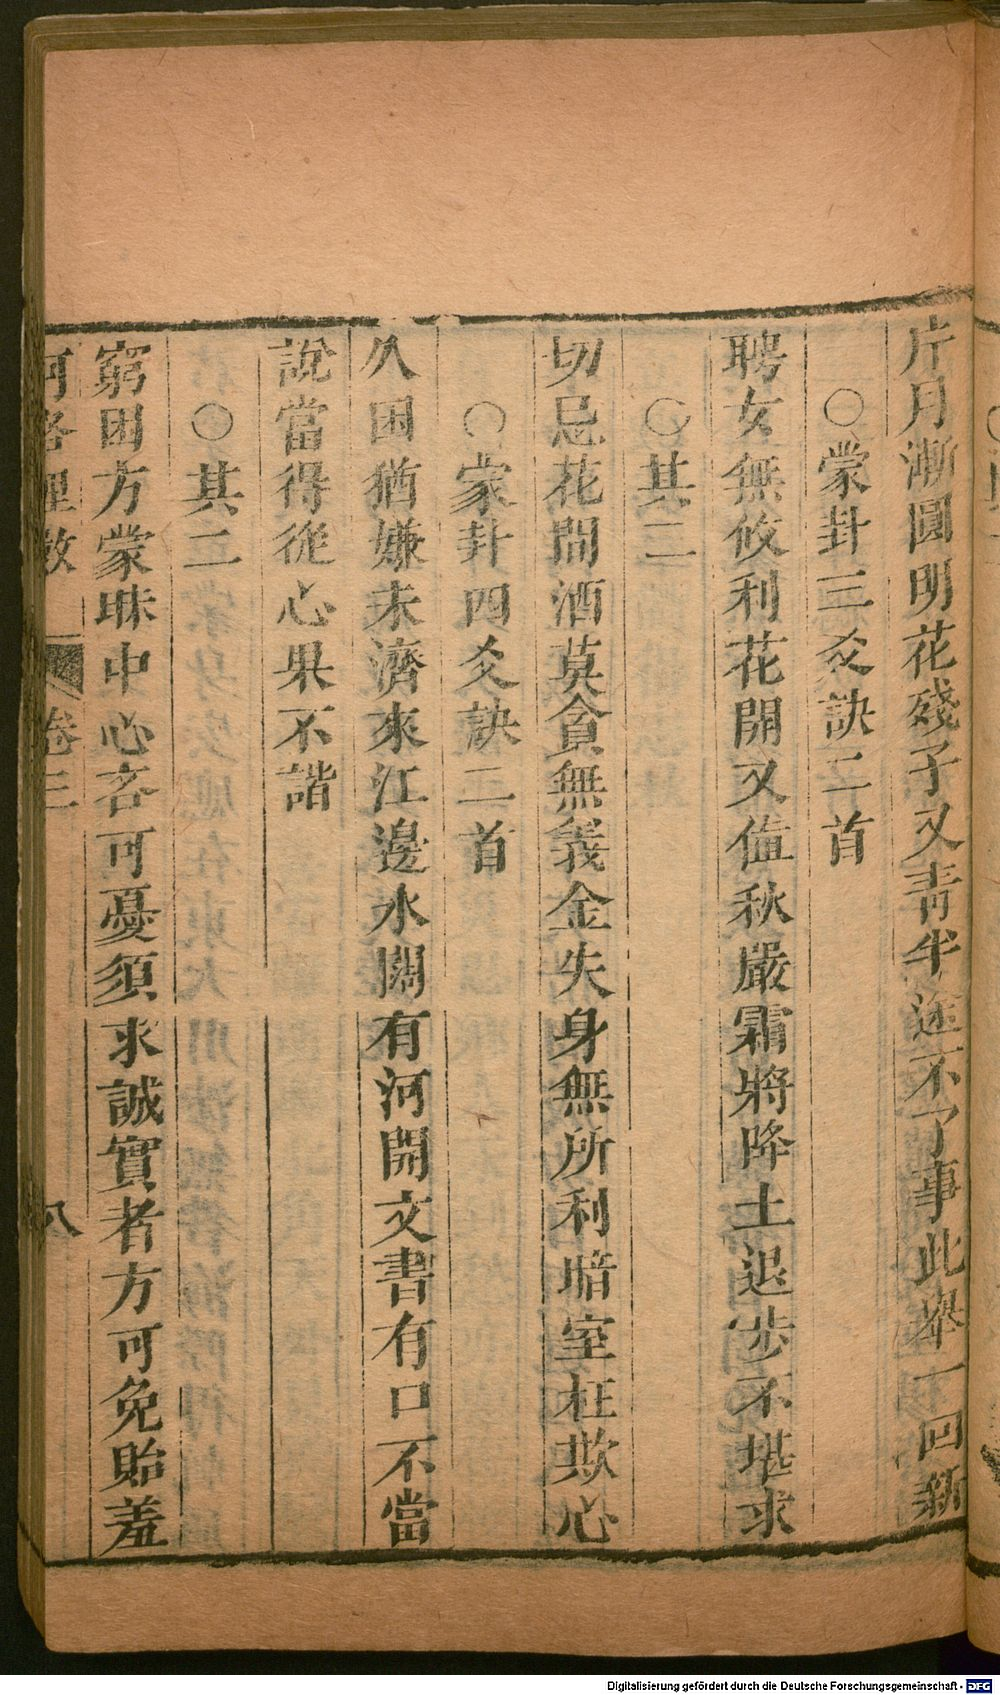 片月漸圓明花殘子又靑半途不了事此舉一囘新
○蒙卦三爻訣二首
聘女無攸利花開又值秋嚴霜將降土退步不堪求
○其二
切忌花間酒莫貪無義金失身無所利暗室枉欺心
○蒙卦四爻訣二首
久困猶嫌未濟來江邊水闊有河開文書有口不當
說當得從心果不諧
○其二
窮困方蒙昧中心吝可憂須求誠實者方可免貽羞
河洛理數 卷三 八
Digitalisierung gefördert durch die Deutsche Forschungsgemeinschaft - DFG